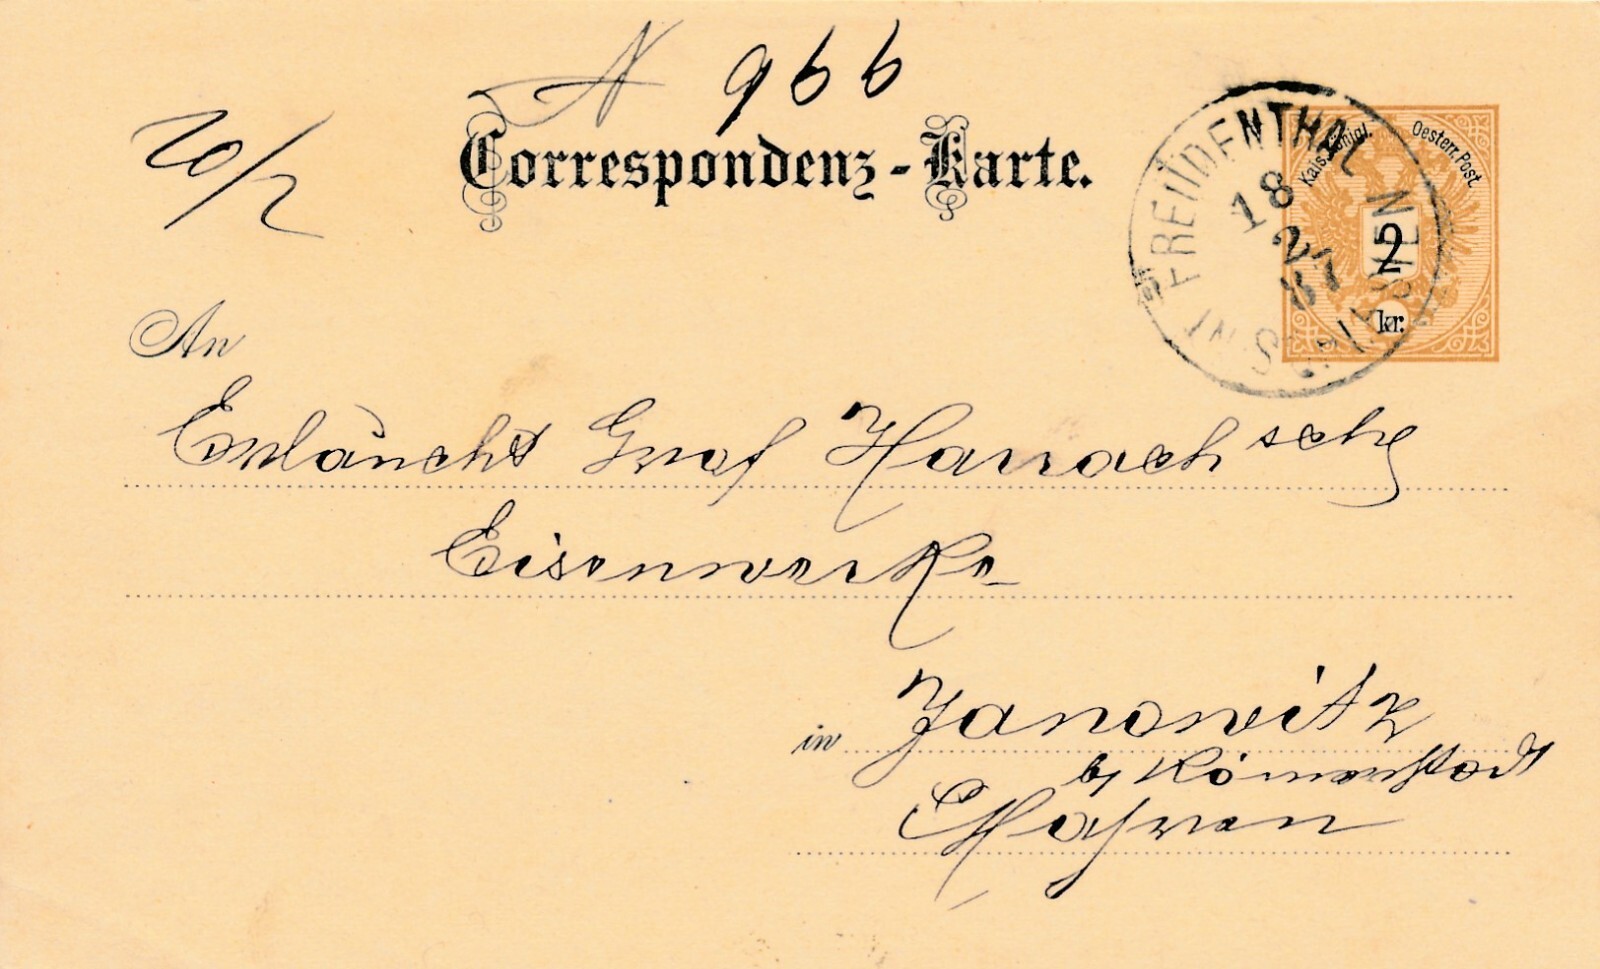 N 966
20/2
Correspondenz-Karte.
Kais. Königl. Oesterr. Post
2 kr.
FREUDENTHAL IN SCHLESIEN
18
2
87
An
Erlaucht Graf Harrach'sche
Eisenwerke
in Janowitz
by Römerstadt
Mähren